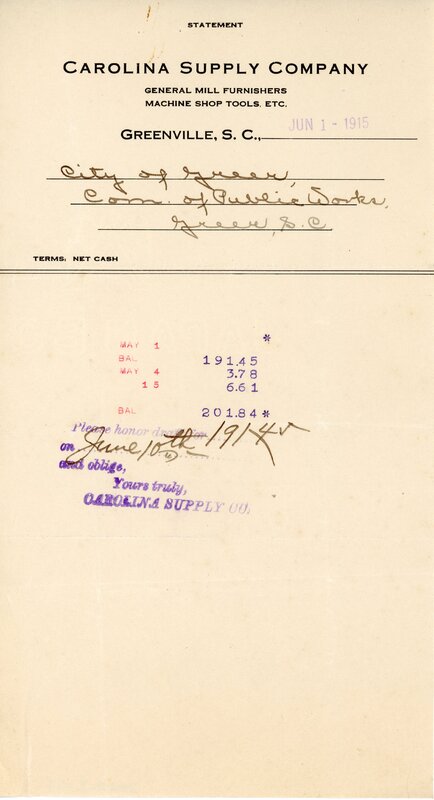 STATEMENT
CAROLINA SUPPLY COMPANY
GENERAL MILL FURNISHERS
MACHINE SHOP TOOLS, ETC.
GREENVILLE, S. C., JUN 1 - 1915
City of Greer,
Com. of Public Works,
Greer, S.C
TERMS: NET CASH
MAY 1 *
BAL 191.45
MAY 4 3.78
15 6.61
BAL 201.84 *
Please honor draft
on June 10th 1914
and oblige,
Yours truly,
CAROLINA SUPPLY CO.